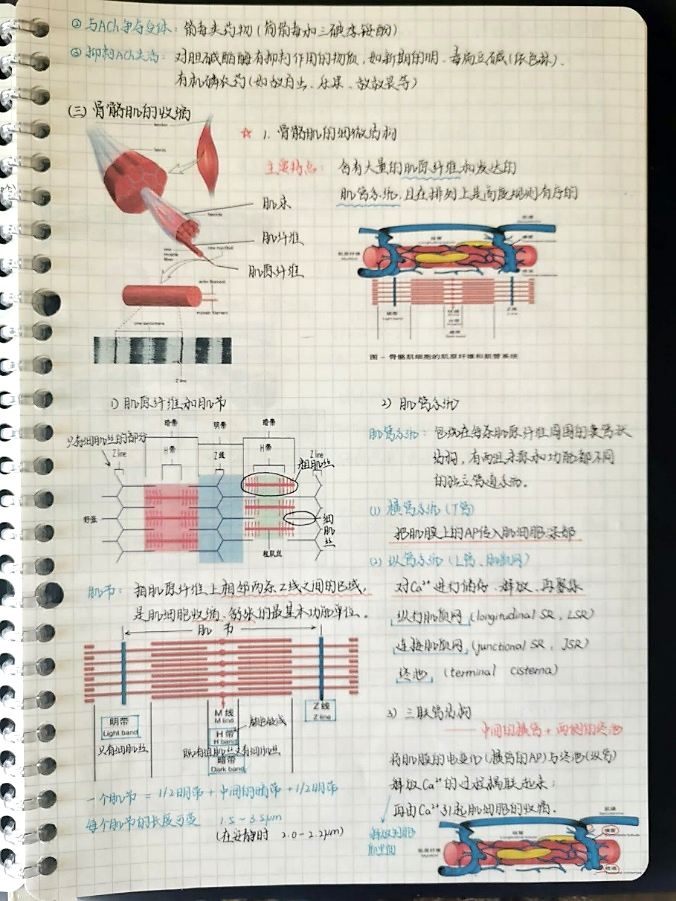 ② 与ACh争夺受体: 箭毒类药物(筒箭毒和三碘季铵酚)
③ 抑制ACh失活: 对胆碱酯酶有抑制作用的物质, 如新斯的明、毒扁豆碱(依色林)、
有机磷农药(如敌百虫、乐果、敌敌畏等)
(三) 骨骼肌的收缩
☆ 1. 骨骼肌的细微结构
主要特点: 含有大量的肌原纤维和发达的
肌管系统, 且在排列上是高度规则有序的
肌束
肌纤维
肌原纤维
Z line
图 - 骨骼肌细胞的肌原纤维和肌管系统
1) 肌原纤维和肌节
只有细肌丝的部分
暗带 明带 暗带
H带 Z线 H带
Z line Z line
粗肌丝
舒张
细肌丝
粗肌丝
肌节: 指肌原纤维上相邻两条Z线之间的区域,
是肌细胞收缩、舒张的最基本功能单位。
肌 节
M线 Z线
M line Z line
明带
Light band
H带
H band
只有细肌丝
暗带
Dark band
一个肌节 = 1/2明带 + 中间的暗带 + 1/2明带
每个肌节的长度可变 1.5 ~ 3.5μm
(在安静时 2.0 - 2.2μm)
2) 肌管系统
肌管系统: 包绕在每条肌原纤维周围的膜管状
结构, 有两组来源和功能都不同
的独立管道系统。
(1) 横管系统(T管)
把肌膜上的AP传入肌细胞深部
(2) 纵管系统(L管、肌质网)
对Ca²⁺进行储存、释放、再聚集
纵行肌质网 (longitudinal SR, LSR)
连接肌质网 (junctional SR, JSR)
终池 (terminal cisterna)
3) 三联管结构
中间的横管 + 两侧的终池
将肌膜的电变化(横管的AP)与终池(纵管)
释放Ca²⁺的过程耦联起来;
再由Ca²⁺引起肌细胞的收缩。